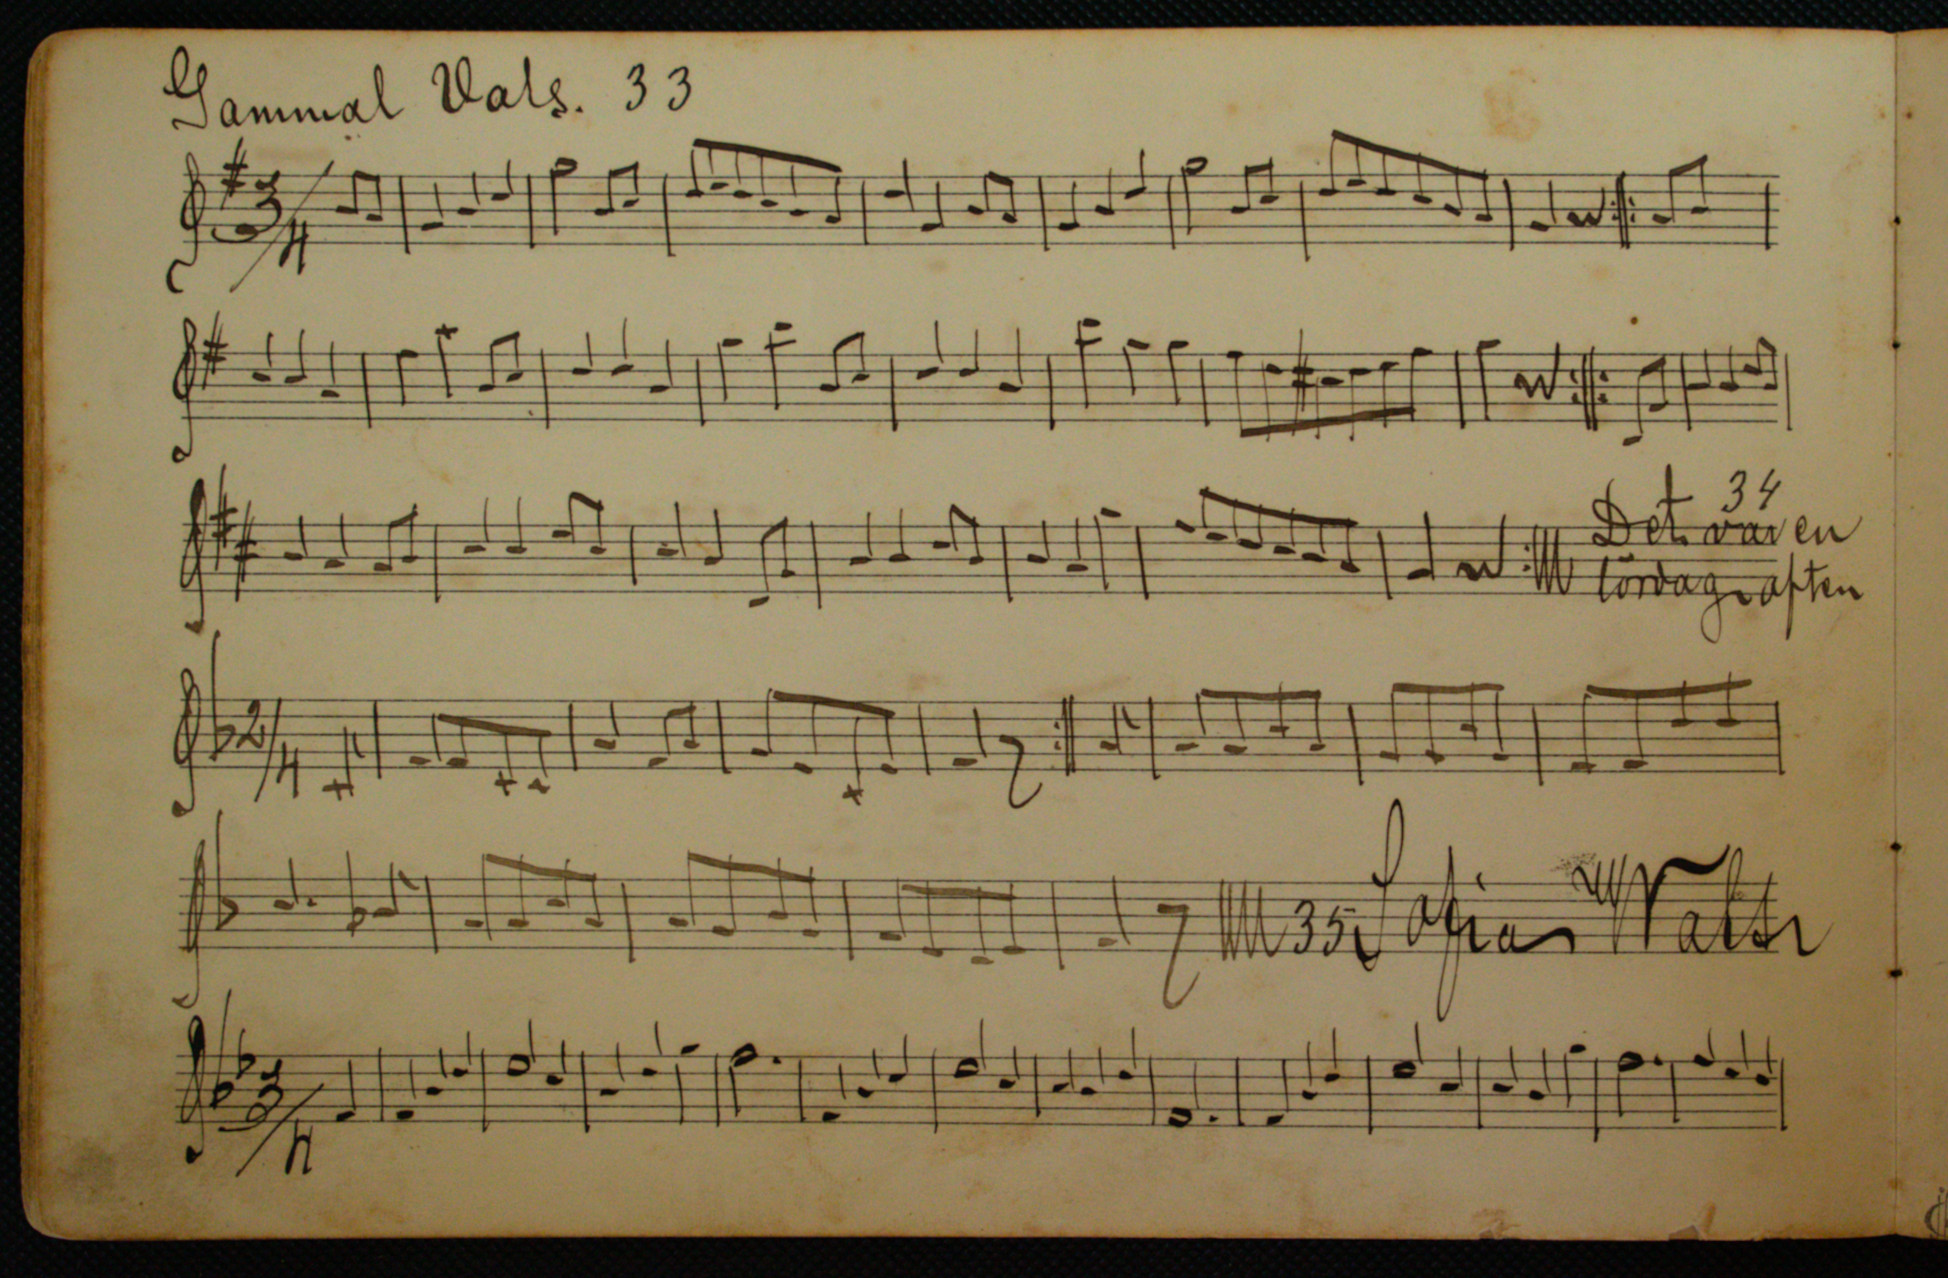 Gammal Vals. 33
3/4
34
Det var en
lördags aften
2/4
35 Sofia Wals
3/4